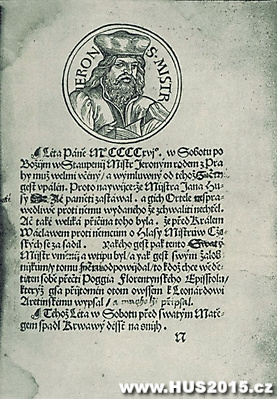 JERON S·MISTR
Léta Páně MCCCCxvj°. w Sobotu po
Božijm w Staupenij Mistr Jeronym rodem z Pra
hy muž welmi včený / a wýmluwný od téhož
gest vpálen. Proto naywijce: že Mistra Jana Hu
sy pamĕti zastáwal. a gich Ortele
prawedliwé proti nĕmu wydaného že zchwáliti nechtĕl.
Ač také weliká přičina toho byla. že před Králem
Wáclawem proti nĕmcuom o Hlasy Mistruow Cžá
ských se za sadil. Yakého gest pak tento
Mistr a wtipu byl / a yak gest swým žalob
nijkuom / y tomu odpowijdal / to kdož chce wĕde
ti ten sobĕ přečti Poggia Florentynského Epissstolu /
kterýž gsa přijtomén otom owssem k Leonárdowi
Aretinskému wypsal / připsal.
Téhož Léta w Sobotu před swatým Matĕ
gem spadl Krwawý déssť na
www.HUS2015.cz